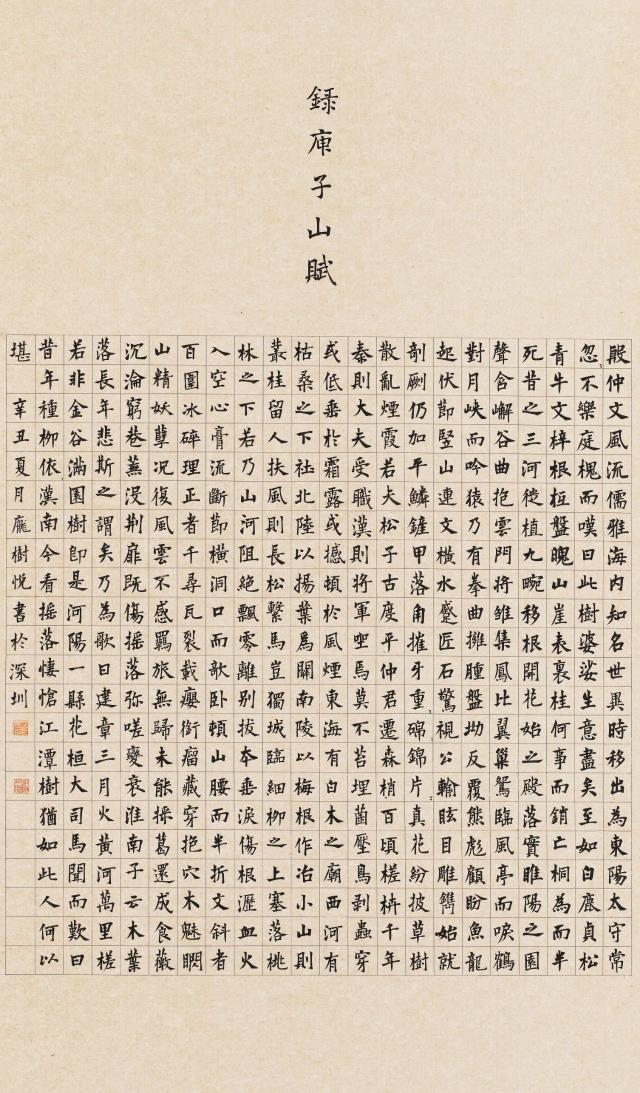 録庾子山賦
殷仲文風流儒雅海内知名世異時移出為東陽太守常
忽不樂庭槐而嘆曰此樹婆娑生意盡矣至如白鹿貞松
青牛文梓根柢盤魄山崖表裏桂何事而銷亡桐為而半
死昔之三河徙植九畹移根開花始之殿落實睢陽之園
聲含嶰谷曲抱雲門將雛集鳳比翼巢鴛臨風亭而唳鶴
對月峽而吟猿乃有拳曲擁腫盤坳反覆熊彪顧盼魚龍
起伏節豎山連文橫水蹙匠石驚視公輸眩目雕鐫始就
剞劂仍加平鱗鏟甲落角摧牙重碎錦片真花紛披草樹
散亂煙霞若夫松子古度平仲君遷森梢百頃槎枿千年
秦則大夫受職漢則將軍坐焉莫不苔埋菌壓鳥剥蟲穿
或低垂於霜露或撼頓於風煙東海有白木之廟西河有
枯桑之下社北陸以揚葉為關南陵以梅根作冶小山則
叢桂留人扶風則長松繫馬豈獨城臨細柳之上塞落桃
林之下若乃山河阻絕飄零離别拔本垂淚傷根瀝血火
入空心膏流斷節橫洞口而欹卧頓山腰而半折文斜者
百圍冰碎理正者千尋瓦裂載癭銜瘤藏穿抱穴木魅睒
山精妖孽况復風雲不感羈旅無歸未能採葛還成食薇
沉淪窮巷蕪没荆扉既傷摇落弥嗟變衰淮南子云木葉
落長年悲斯之謂矣乃為歌曰建章三月火黄河萬里槎
若非金谷滿園樹即是河陽一縣花桓大司馬聞而歎曰
昔年種柳依漢南今看摇落悽愴江潭樹猶如此人何以
堪 辛丑夏月龐樹悦書於深圳